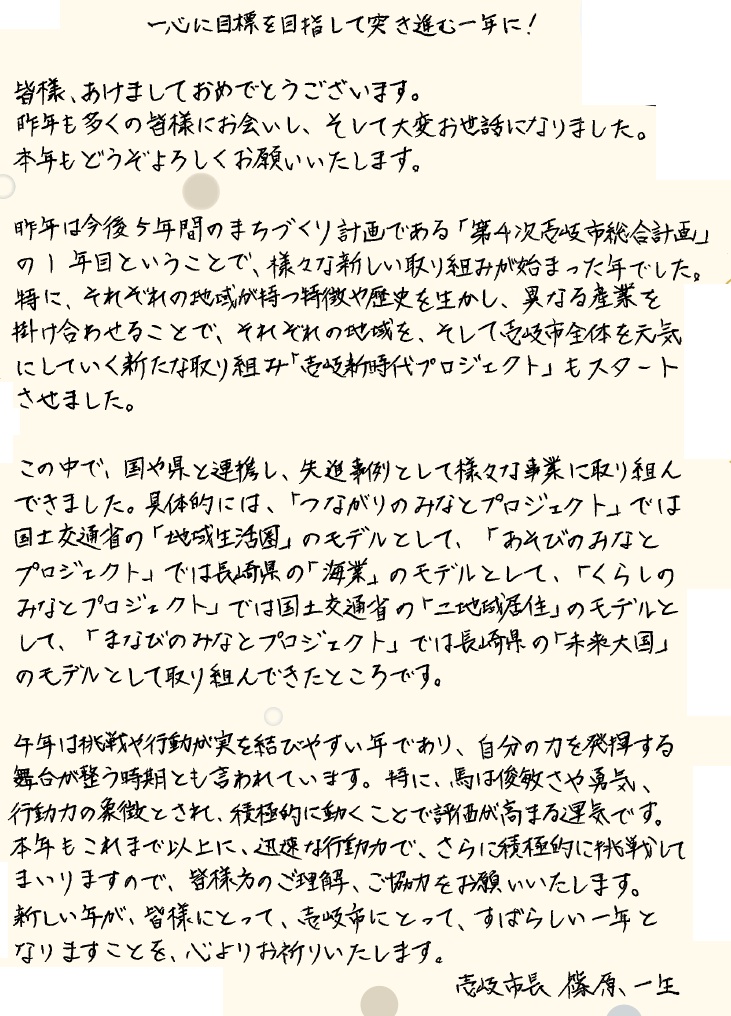 一心に目標を目指して突き進む一年に！
皆様、あけましておめでとうございます。
昨年も多くの皆様にお会いし、そして大変お世話になりました。
本年もどうぞよろしくお願いいたします。
昨年は今後5年間のまちづくり計画である「第4次壱岐市総合計画」
の1年目ということで、様々な新しい取り組みが始まった年でした。
特に、それぞれの地域が持つ特徴や歴史を生かし、異なる産業を
掛け合わせることで、それぞれの地域を、そして壱岐市全体を元気
にしていく新たな取り組み「壱岐新時代プロジェクト」もスタート
させました。
この中で、国や県と連携し、先進事例として様々な事業に取り組ん
できました。具体的には、「つながりのみなとプロジェクト」では
国土交通省の「地域生活圏」のモデルとして、「あそびのみなと
プロジェクト」では長崎県の「海業」のモデルとして、「くらしの
みなとプロジェクト」では国土交通省の「二地域居住」のモデルと
して、「まなびのみなとプロジェクト」では長崎県の「未来大国」
のモデルとして取り組んできたところです。
午年は挑戦や行動が実を結びやすい年であり、自分の力を発揮する
舞台が整う時期とも言われています。特に、馬は俊敏さや勇気、
行動力の象徴とされ、積極的に動くことで評価が高まる運気です。
本年もこれまで以上に、迅速な行動力で、さらに積極的に挑戦して
まいりますので、皆様方のご理解、ご協力をお願いいたします。
新しい年が、皆様にとって、壱岐市にとって、すばらしい一年と
なりますことを、心よりお祈りいたします。
壱岐市長 篠原 一生